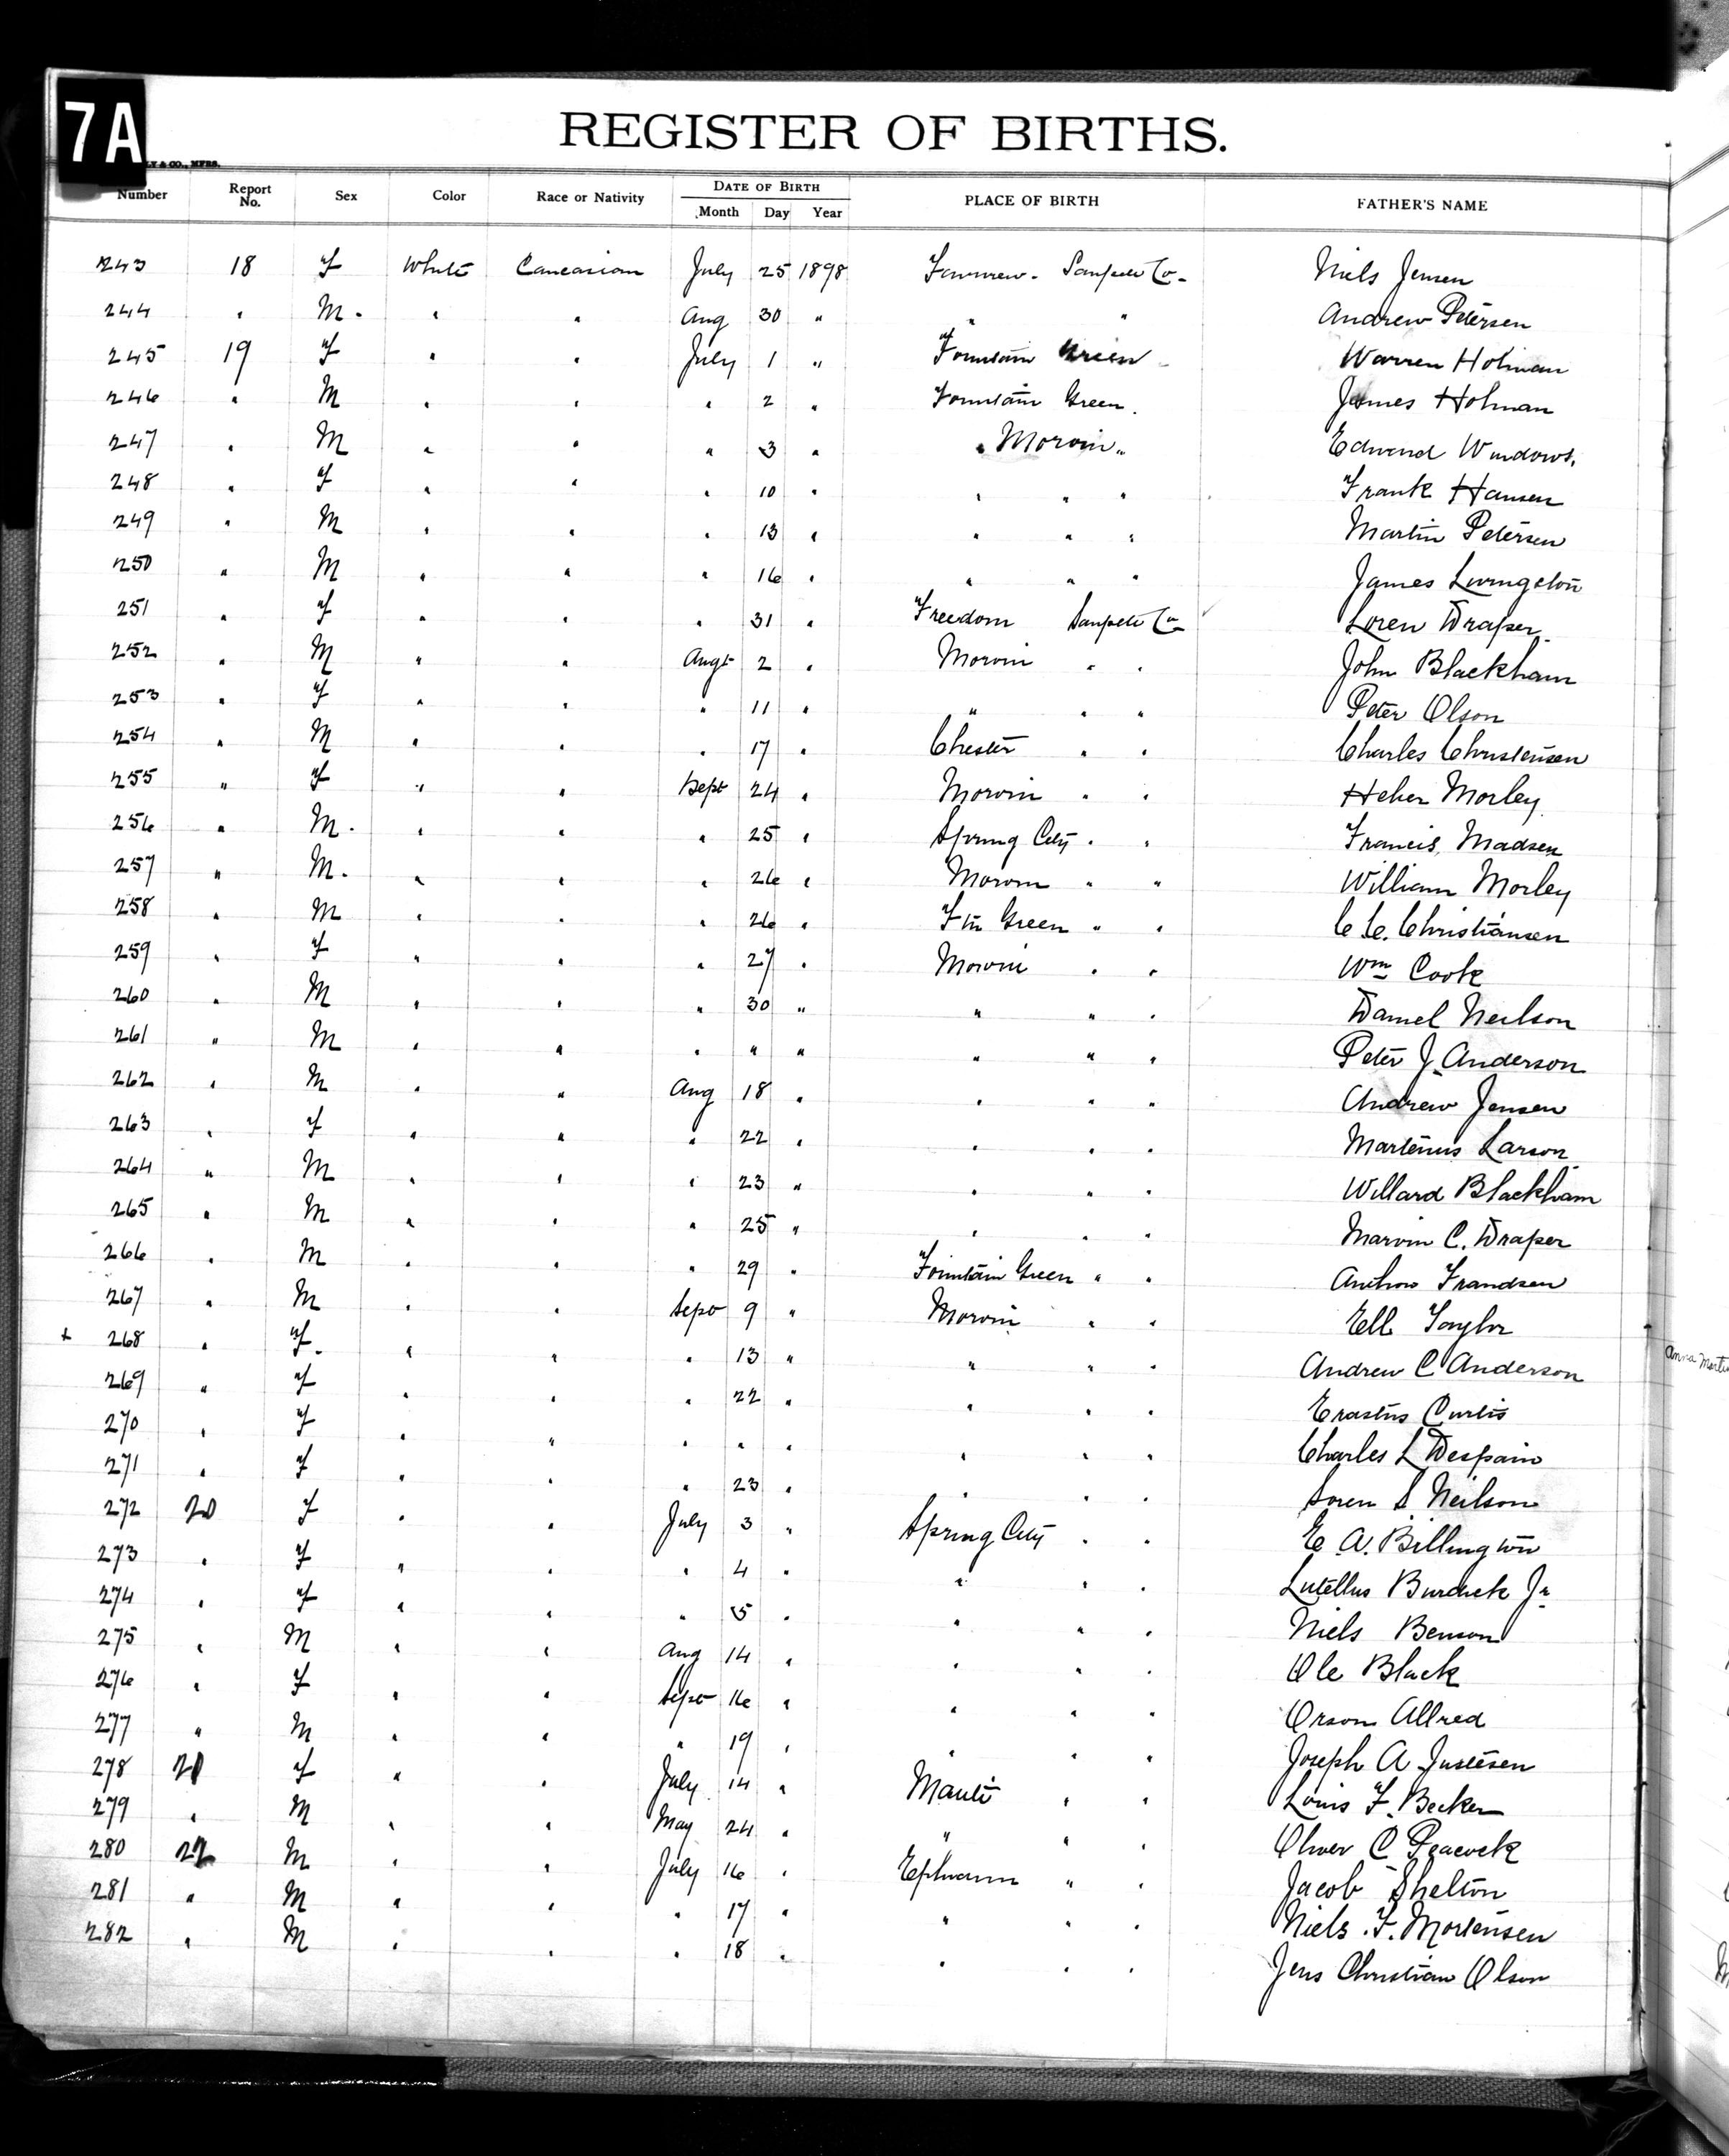 7A
LY & CO., MFRS.
REGISTER OF BIRTHS.
Number Report No. Sex Color Race or Nativity DATE OF BIRTH Month Day Year PLACE OF BIRTH FATHER'S NAME
243 18 F White Caucasian July 25 1898 Sanpete Co- Niels Jensen
244 " M. " " Aug 30 " " " Andrew Petersen
245 19 F " " July 1 " Fountain Green Warren Holman
246 " M " " " 2 " Fountain Green. James Holman
247 " M " " " 3 " " Moroni " Edward
248 " F " " " 10 " " " " Frank Hansen
249 " M " " " 13 " " " " Martin Petersen
250 " M " " " 16 " " " " James Livingston
251 " F " " " 31 " Freedom Sanpete Co Loren Draper
252 " M " " Augt 2 " Moroni " " John Blackham
253 " F " " " 11 " " " " Peter Olson
254 " M " " " 17 " Chester " " Charles Christensen
255 " F " " Sept 24 " Moroni " " Heber Morley
256 " M. " " " 25 " Spring City " " Francis Madsen
257 " M. " " " 26 " Moroni " " William Morley
258 " M " " " 26 " Ftn Green " " C C. Christiansen
259 " F " " " 27 " Moroni " " Wm Cook
260 " M " " " 30 " " " " Daniel Neilson
261 " M " " " " " " " " Peter J. Anderson
262 " M " " Aug 18 " " " " Andrew Jensen
263 " F " " " 22 " " " " Martenus Larson
264 " M " " " 23 " " " " Willard Blackham
265 " M " " " 25 " " " " Marvin C. Draper
266 " M " " " 29 " Fountain Green " " Frandsen
267 " M " " Sept 9 " Moroni " " Taylor
+ 268 " F. " " " 13 " " " " Andrew C Anderson Anna
269 " F " " " 22 " " " " Erastus Curtis
270 " F " " " " " " " " Charles L Despain
271 " F " " " 23 " " " " Soren S Neilson
272 20 F " " July 3 " Spring City " " E. A. Billington
273 " F " " " 4 " " " " Burdick Jr
274 " F " " " 5 " " " " Niels Benson
275 " M " " Aug 14 " " " " Ole Black
276 " F " " Sept 16 " " " " Orson Allred
277 " M " " " 19 " " " " Joseph A Justesen
278 21 F " " July 14 " Manti " " Louis F. Becker
279 " M " " May 24 " " " " Oliver C Peacock
280 22 M " " July 16 " Ephraim " " Jacob Shelton
281 " M " " " 17 " " " " Niels F. Mortensen
282 " M " " " 18 " " " " Jens Christian Olson